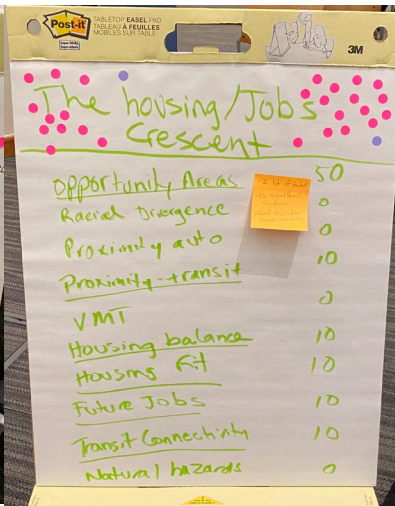 Post-it
TABLETOP EASEL PAD
TABLEAU À FEUILLES
MOBILES SUR TABLE
3M
The housing/Jobs
Crescent
Opportunity Areas 50
Racial Divergence 0
Proximity auto 0
Proximity-transit 10
VMT 0
Housing balance 10
Housing fit 10
Future Jobs 10
Transit Connectivity 10
Natural hazards 0